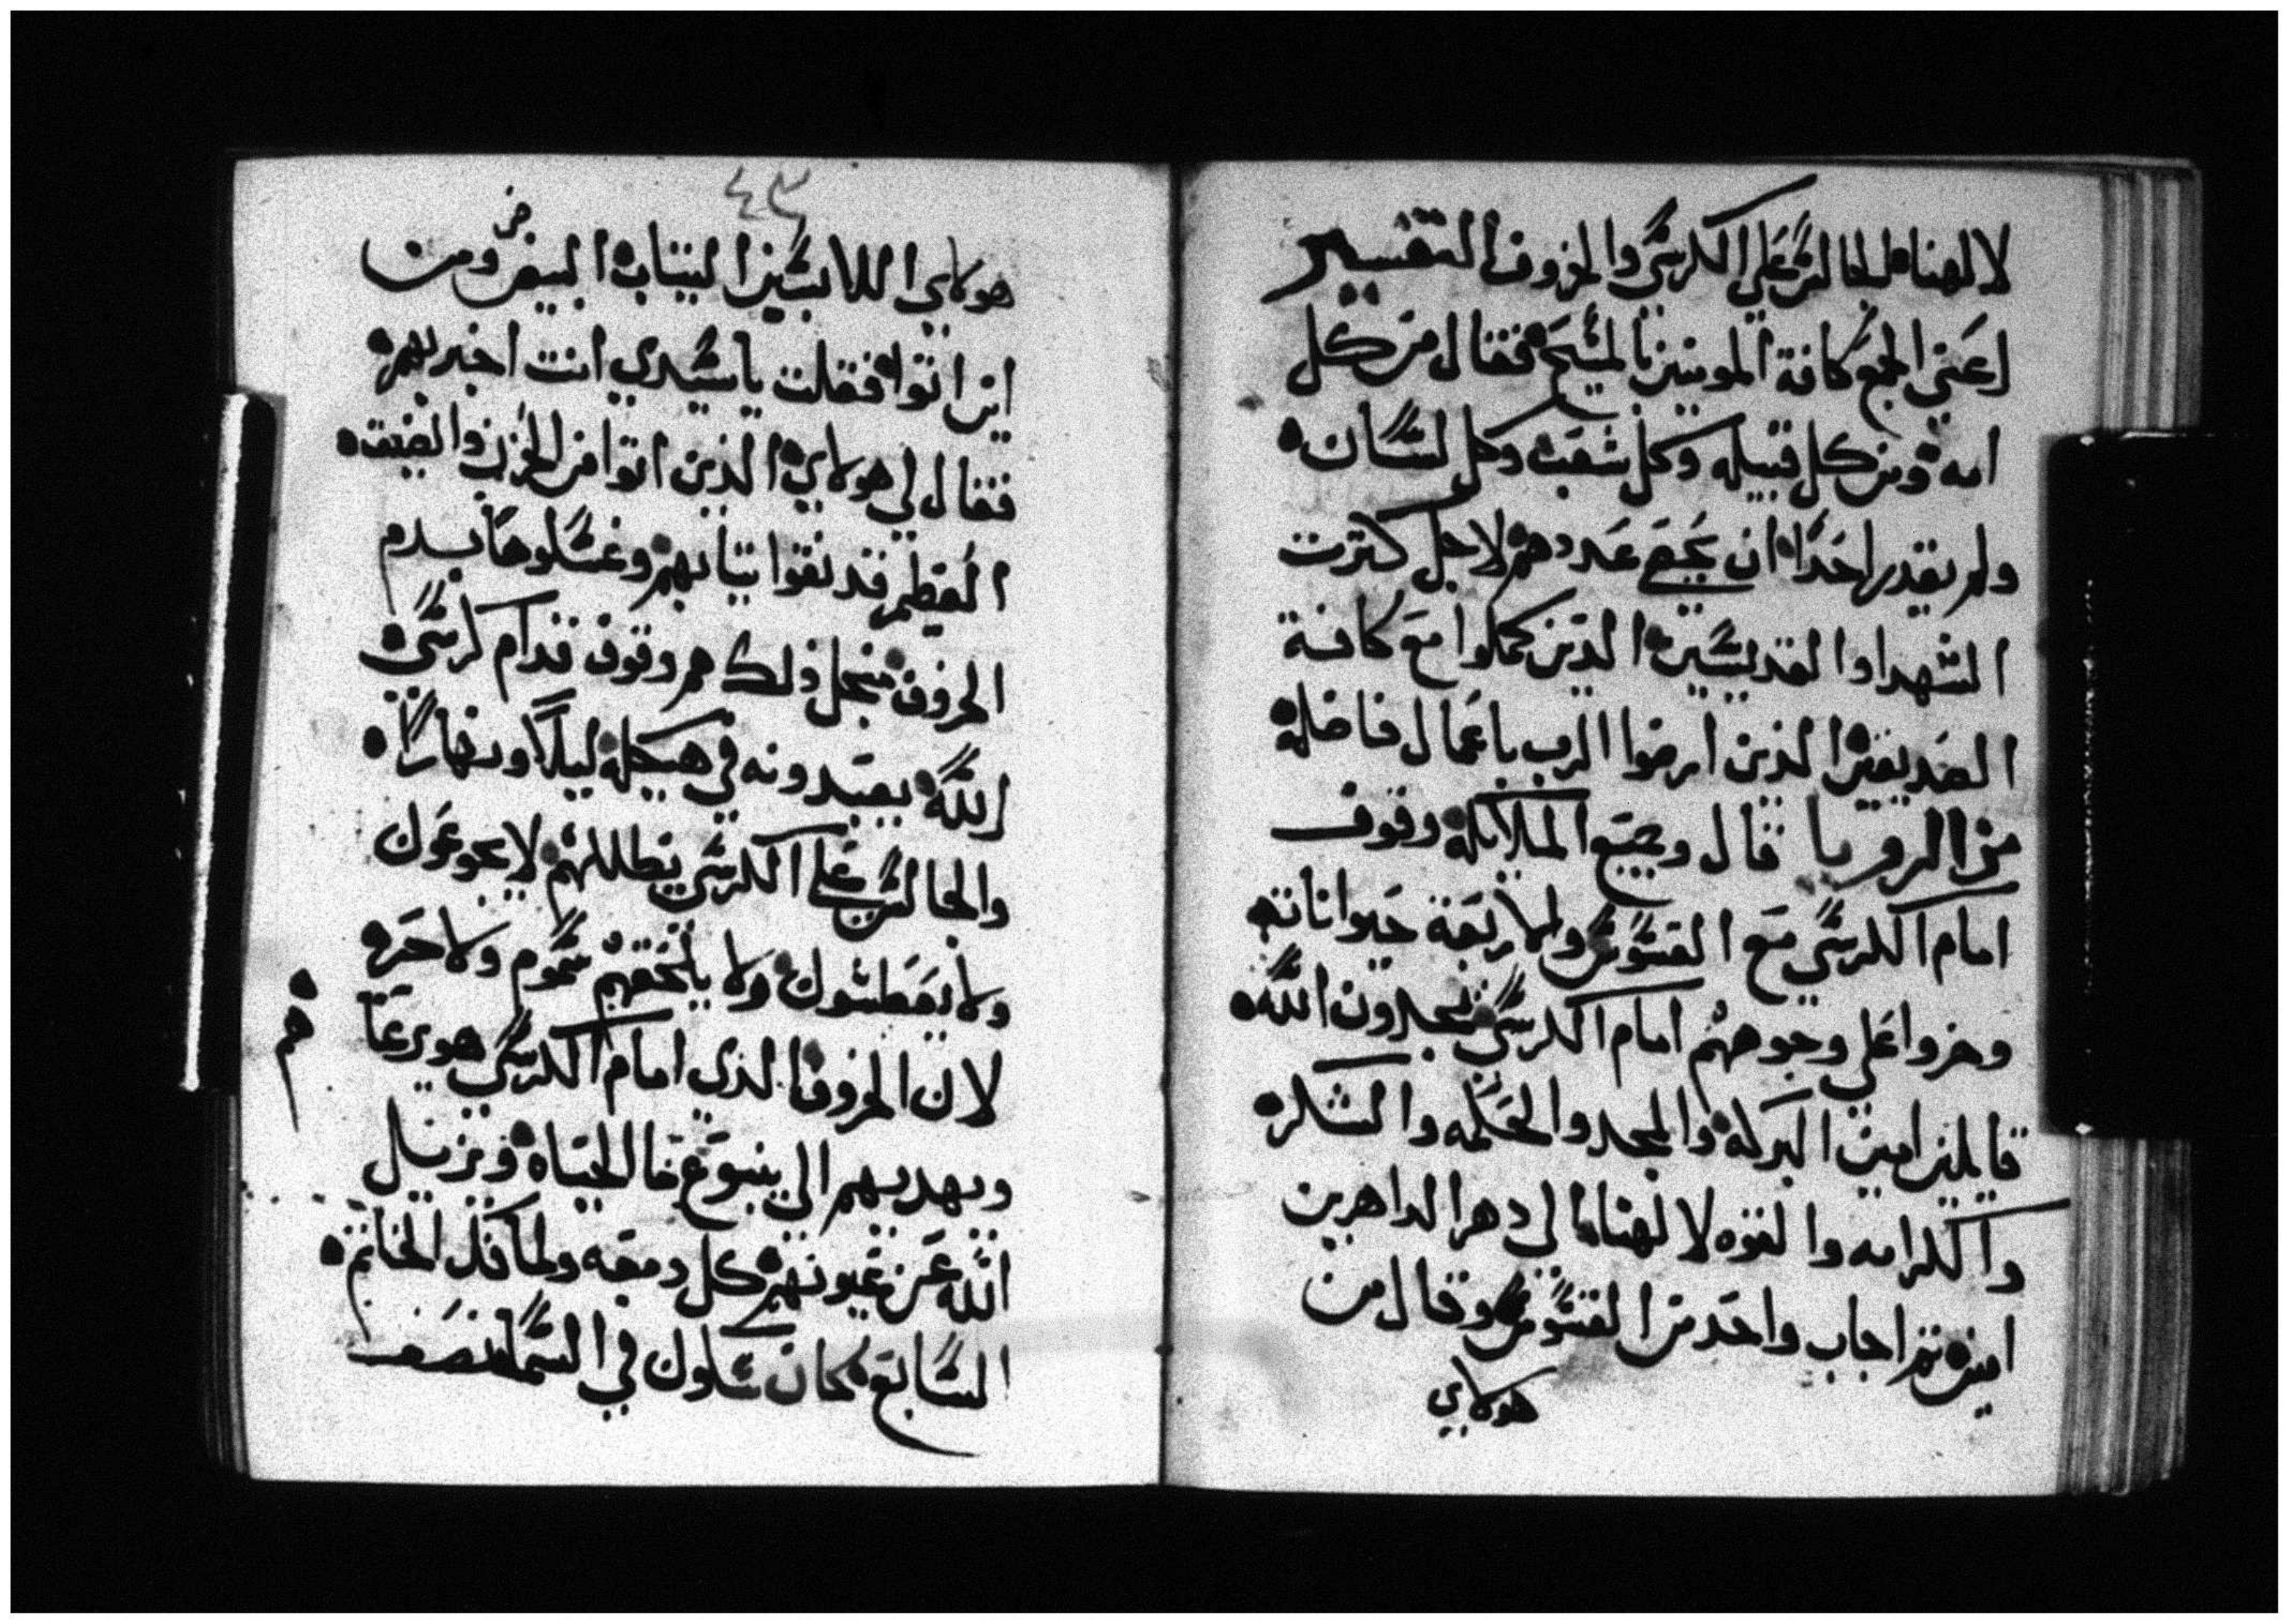 لالهنا الجالس على الكرسي والخروف التفسير
اعني الجمع كافة المومنين بالمسيح فقال من كل
امه ومن كل قبيله وكل شعب وكل لسان
ولم يقدر احدا ان يجمع عددهم لاجل كترت
الشهدا والقديسين الدين كملوا مع كافة
الصديقين الذين ارضوا الرب باعمال فاضله
من الرويا قال وجميع الملايكة وقوف
امام الكرسي مع القسوس والاربعة حيوانات
وخروا على وجوههم امام الكرسي يمجدون الله
قايلين امين البركة والمجد والحكمه والشكر
والكرامه والقوه لالهنا الي دهر الداهرين
امين تم اجاب واحد من القسوس وقال من
هولاي
٤٣
هولاي اللابسين التياب البيض ومن
اين اتوا فقلت ياسيدي انت اخبر بهم
فقال لي هولاي الذين اتوا من الحزن والضيق
العظيم قد نقوا تيابهم وغسلوها بدم
الخروف منجل ذلك هم وقوف قدام كرسي
الله يعبدونه في هيكله ليلا ونهارا
والجالس على الكرسي يظللهم لا يجوعون
ولا يعطشون ولا يلحقهم سموم ولا حر
لان الخروف الذي امام الكرسي هو يرعا
ويهديهم الي ينبوع ما الحياه ويزيل
الله عن عيونهم كل دمعه ولما فك الخاتم
السابع كان سكون في السما نصف